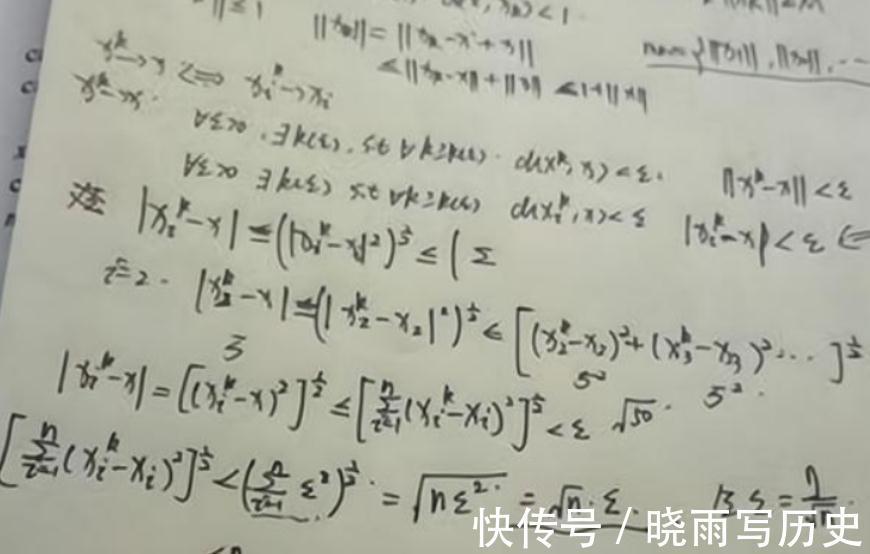 ||≤1
)<1
||xₖ||=||xₖ-x+x||
≤||xₖ-x||+||x|| ≤1+||x||
max{||x₁||,||x₂||,…
xᵏ→x ⟺ xᵢᵏ→xᵢ
xᵏ→x.
∀ε>0, ∃k(ε), s.t ∀k≥k(ε). d(xᵏ,x)<ε. ||xᵏ-x||<ε
∀ε>0 ∃k(ε) s.t ∀k≥k(ε) d(xᵢᵏ,x)<ε |xᵢᵏ-x|<ε (=
|xᵢᵏ-x|≤(|xᵢᵏ-x|²)^½≤(Σ
i=2. |x₂ᵏ-x|≤(|x₂ᵏ-x₂|²)^½≤[(x₂ᵏ-x₂)²+(x₃ᵏ-x₃)²...]^½
5 5² 5².
|xᵢᵏ-x|=[(xᵢᵏ-x)²]^½≤[Σⁿᵢ₌₁(xᵢᵏ-xᵢ)²]^½<ε √50.
[Σⁿᵢ₌₁(xᵢᵏ-xᵢ)²]^½<(Σⁿᵢ₌₁ε²)^½.=√nε².=√n.ε
快传号 / 晓雨写历史